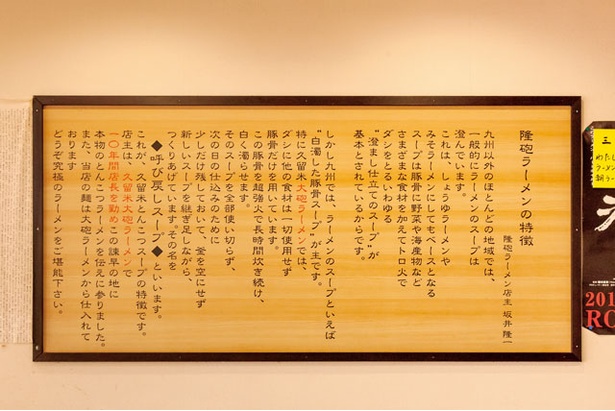 隆砲ラーメンの特徴
隆砲ラーメン店主 坂井隆一
九州以外のほとんどの地域では、
一般的にラーメンのスープは
澄んでいます。
これは、しょうゆラーメンや
みそラーメンにしてもベースとなる
スープは豚骨に野菜や海産物など
さまざまな食材を加えてトロ火で
ダシをとるいわゆる
“澄まし仕立てのスープ”が
基本とされているからです。
しかし九州では、ラーメンのスープといえば
“白濁した豚骨スープ”が主です。
特に久留米大砲ラーメンでは、
ダシに他の食材は一切使用せず
豚骨だけを用いています。
この豚骨を超強火で長時間炊き続け、
白く濁らせます。
そのスープを全部使い切らず、
次の日の仕込みのために
少しだけ残しておいて、釜を空にせず
新しいスープを継ぎ足しながら、
つくりあげています。その名を
◆呼び戻しスープ◆といいます。
これが、久留米とんこつスープの特徴です。
店主は、久留米大砲ラーメンで
一〇年間店長を勤めこの諫早の地に
本物のとんこつラーメンを伝えに参りました。
また、当店の麺は大砲ラーメンから仕入れて
おります
どうぞ究極のラーメンをご堪能下さい。
三
わたし
ラーメン
201
RO